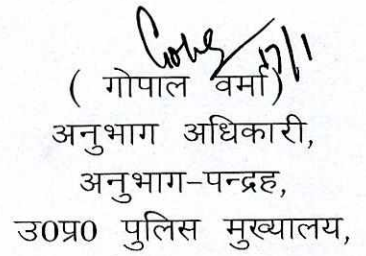 17/1
( गोपाल वर्मा)
अनुभाग अधिकारी,
अनुभाग-पन्द्रह,
उ0प्र0 पुलिस मुख्यालय,